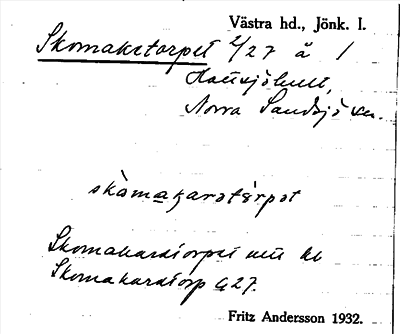 Västra hd., Jönk. l.
Skomaketorpet 2/27 å 1
Hattsjöhult,
Norra Sandsjö sn.
skòmakarətórpət
Skomakaretorpet
Skomakaretorp G 27.
Fritz Andersson 1932.